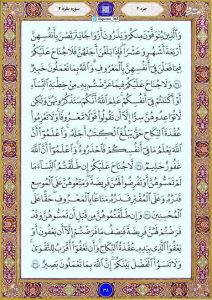 جزء ۲ سوره بقره ۲
وَالَّذِينَ يُتَوَفَّوْنَ مِنكُمْ وَيَذَرُونَ أَزْوَاجًا يَتَرَبَّصْنَ بِأَنفُسِهِنَّ
أَرْبَعَةَ أَشْهُرٍ وَعَشْرًا فَإِذَا بَلَغْنَ أَجَلَهُنَّ فَلَا جُنَاحَ عَلَيْكُمْ
فِيمَا فَعَلْنَ فِي أَنفُسِهِنَّ بِالْمَعْرُوفِ وَاللَّهُ بِمَا تَعْمَلُونَ خَبِيرٌ
﴿٢٣٤﴾ وَلَا جُنَاحَ عَلَيْكُمْ فِيمَا عَرَّضْتُم بِهِ مِنْ خِطْبَةِ النِّسَاءِ
أَوْ أَكْنَنتُمْ فِي أَنفُسِكُمْ عَلِمَ اللَّهُ أَنَّكُمْ سَتَذْكُرُونَهُنَّ وَلَٰكِن
لَّا تُوَاعِدُوهُنَّ سِرًّا إِلَّا أَن تَقُولُوا قَوْلًا مَّعْرُوفًا وَلَا تَعْزِمُوا
عُقْدَةَ النِّكَاحِ حَتَّىٰ يَبْلُغَ الْكِتَابُ أَجَلَهُ وَاعْلَمُوا أَنَّ
اللَّهَ يَعْلَمُ مَا فِي أَنفُسِكُمْ فَاحْذَرُوهُ وَاعْلَمُوا أَنَّ اللَّهَ
غَفُورٌ حَلِيمٌ ﴿٢٣٥﴾ لَّا جُنَاحَ عَلَيْكُمْ إِن طَلَّقْتُمُ النِّسَاءَ مَا
لَمْ تَمَسُّوهُنَّ أَوْ تَفْرِضُوا لَهُنَّ فَرِيضَةً وَمَتِّعُوهُنَّ عَلَى الْمُوسِعِ
قَدَرُهُ وَعَلَى الْمُقْتِرِ قَدَرُهُ مَتَاعًا بِالْمَعْرُوفِ حَقًّا عَلَى
الْمُحْسِنِينَ ﴿٢٣٦﴾ وَإِن طَلَّقْتُمُوهُنَّ مِن قَبْلِ أَن تَمَسُّوهُنَّ وَقَدْ
فَرَضْتُمْ لَهُنَّ فَرِيضَةً فَنِصْفُ مَا فَرَضْتُمْ إِلَّا أَن يَعْفُونَ أَوْ
يَعْفُوَ الَّذِي بِيَدِهِ عُقْدَةُ النِّكَاحِ وَأَن تَعْفُوا أَقْرَبُ لِلتَّقْوَىٰ
وَلَا تَنسَوُا الْفَضْلَ بَيْنَكُمْ إِنَّ اللَّهَ بِمَا تَعْمَلُونَ بَصِيرٌ ﴿٢٣٧﴾
۳۸